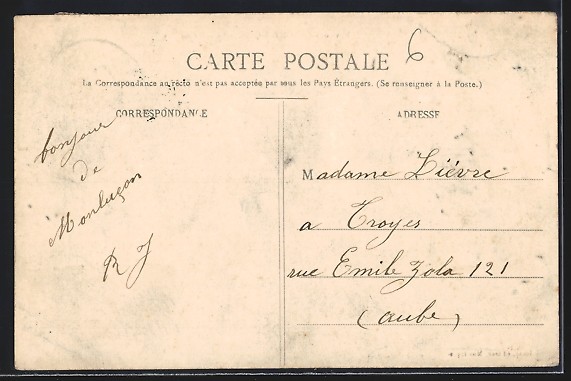 6
CARTE POSTALE
La Correspondance au recto n'est pas acceptée par tous les Pays Étrangers. (Se renseigner à la Poste.)
CORRESPONDANCE
bonjour
de
Monluçon
R J
ADRESSE
Madame Lièvre
a Troyes
rue Emile Zola 121
(aube)